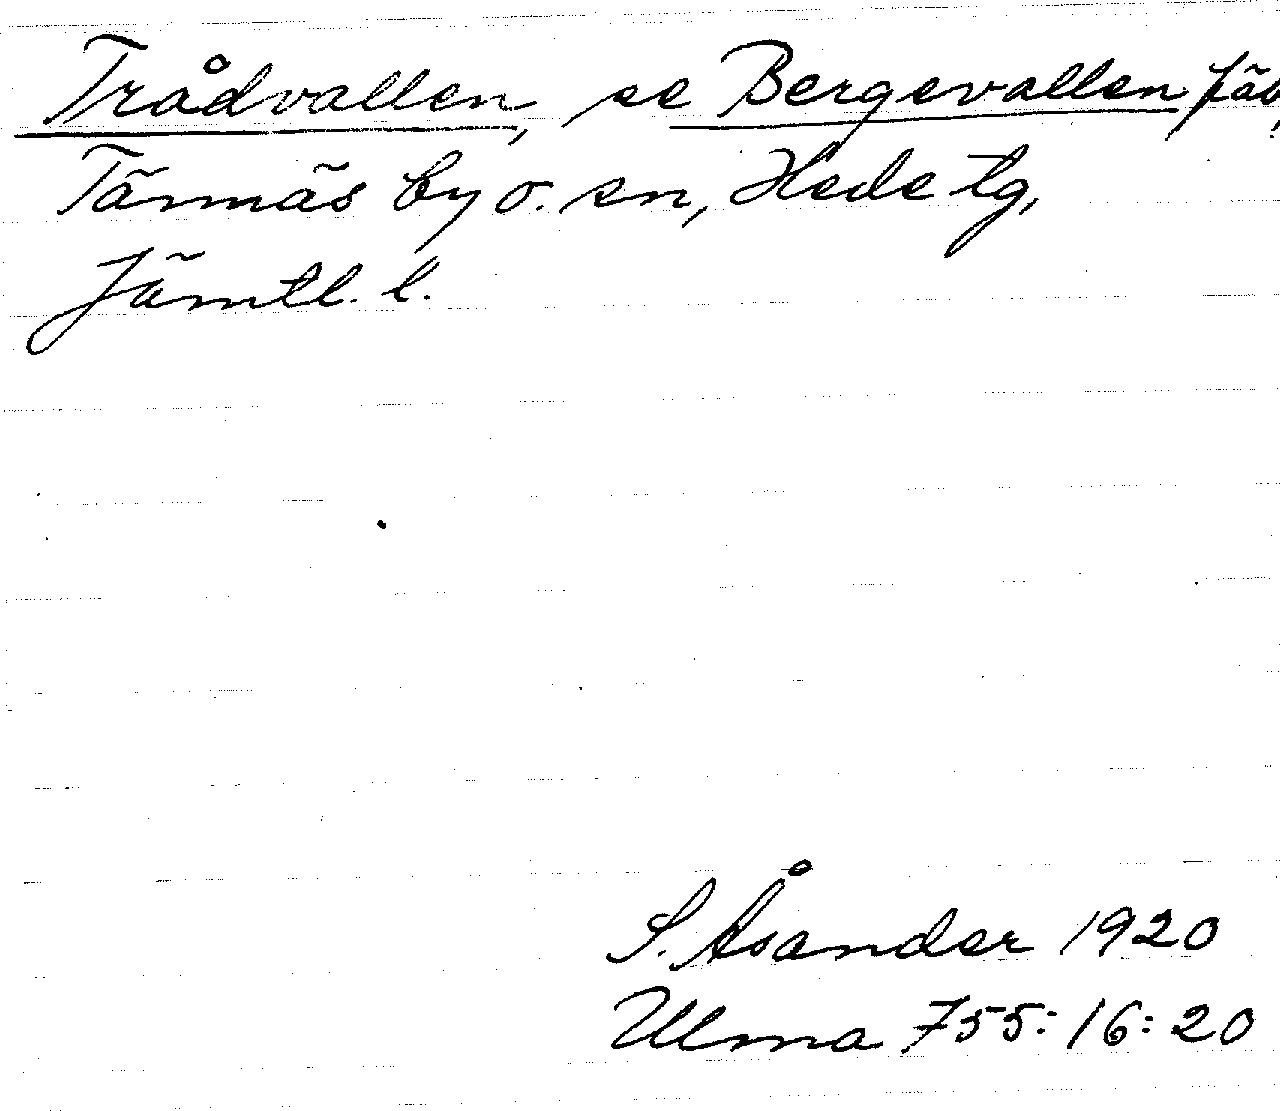 Trådvallen, se Bergevallen fäb,
Tännäs by o. sn, Hede tg,
Jämtl. l.
S. Åsander 1920
Ulma 755:16:20